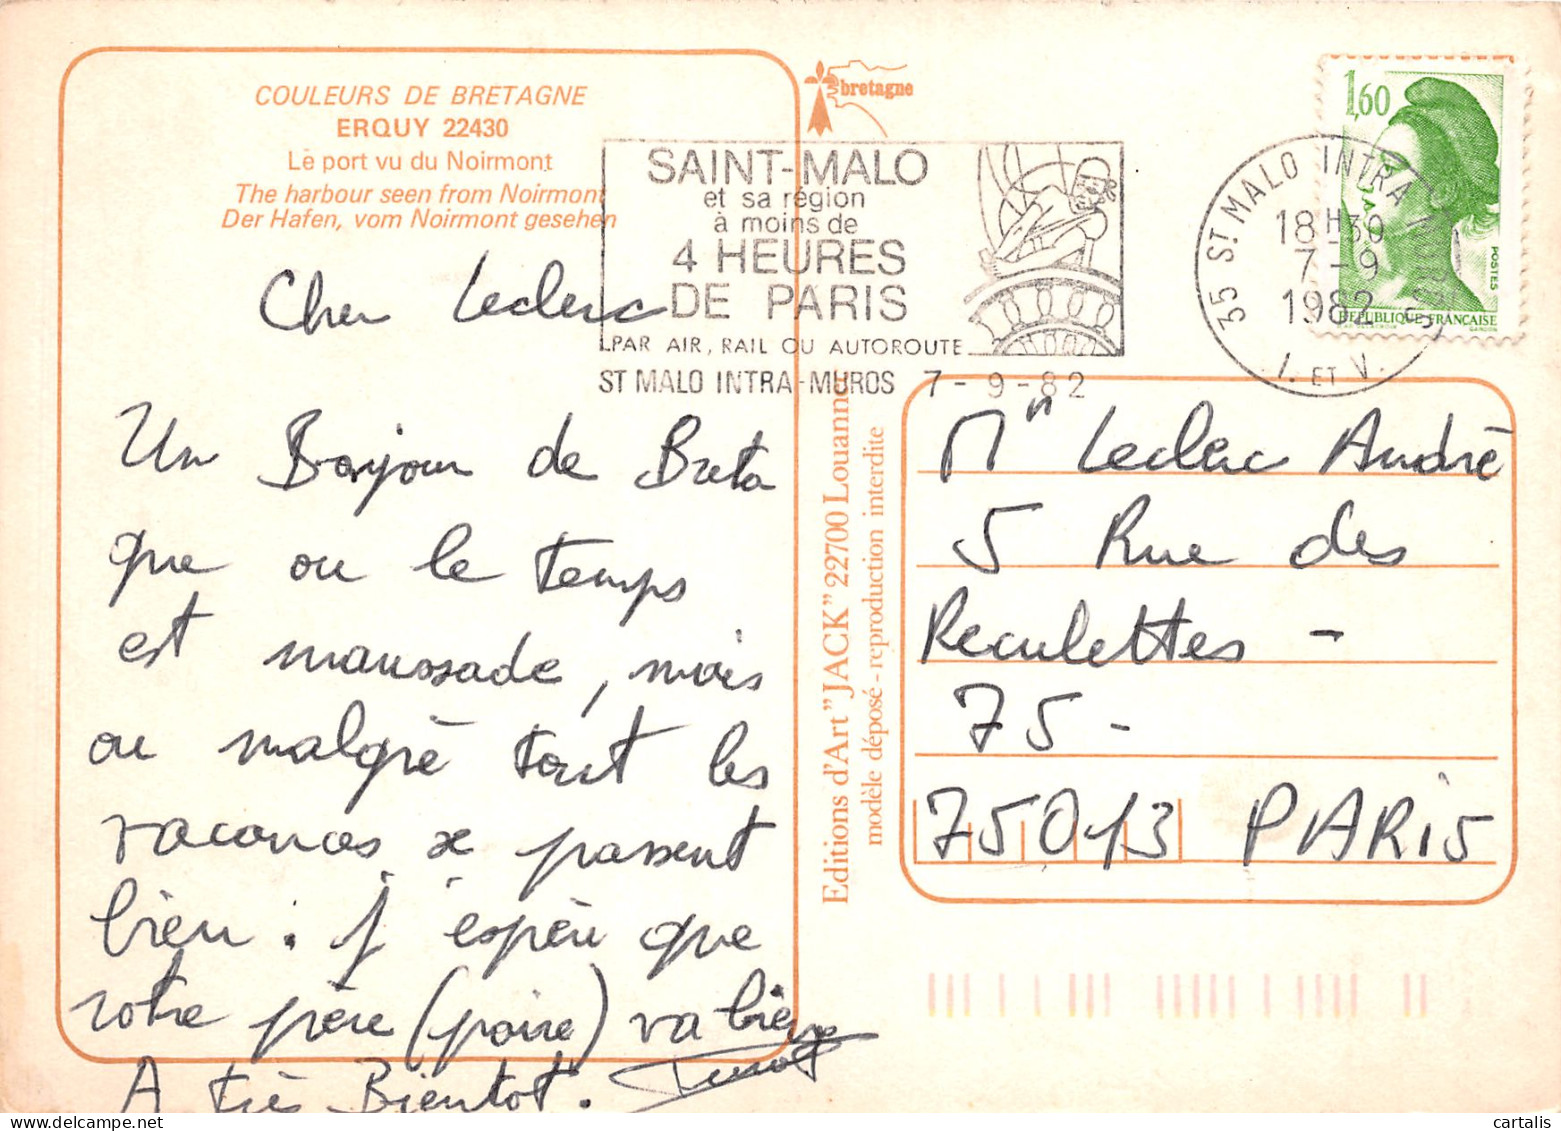 COULEURS DE BRETAGNE
ERQUY 22430
Le port vu du Noirmont
The harbour seen from Noirmont
Der Hafen, vom Noirmont gesehen
bretagne
SAINT-MALO
et sa région
à moins de
4 HEURES
DE PARIS
PAR AIR, RAIL OU AUTOROUTE
ST MALO INTRA-MUROS 7-9-82
35 ST MALO INTRA MUROS
18H30
7-9
1982
I. ET V.
1,60
POSTES
REPUBLIQUE FRANCAISE
GANDON
Cher Leclerc
Un Bonjour de Breta
gne ou le temps
est maussade, mais
ou malgrè tout les
vacances se passent
bien. j'espère que
votre père (poire) va bien
A très Bientot.
Editions d'Art "JACK" 22700 Louannec
modèle déposé - reproduction interdite
Mr Leclerc André
5 Rue des
Reculettes -
75 -
75013 PARIS
www.cartalis.com
cartalis